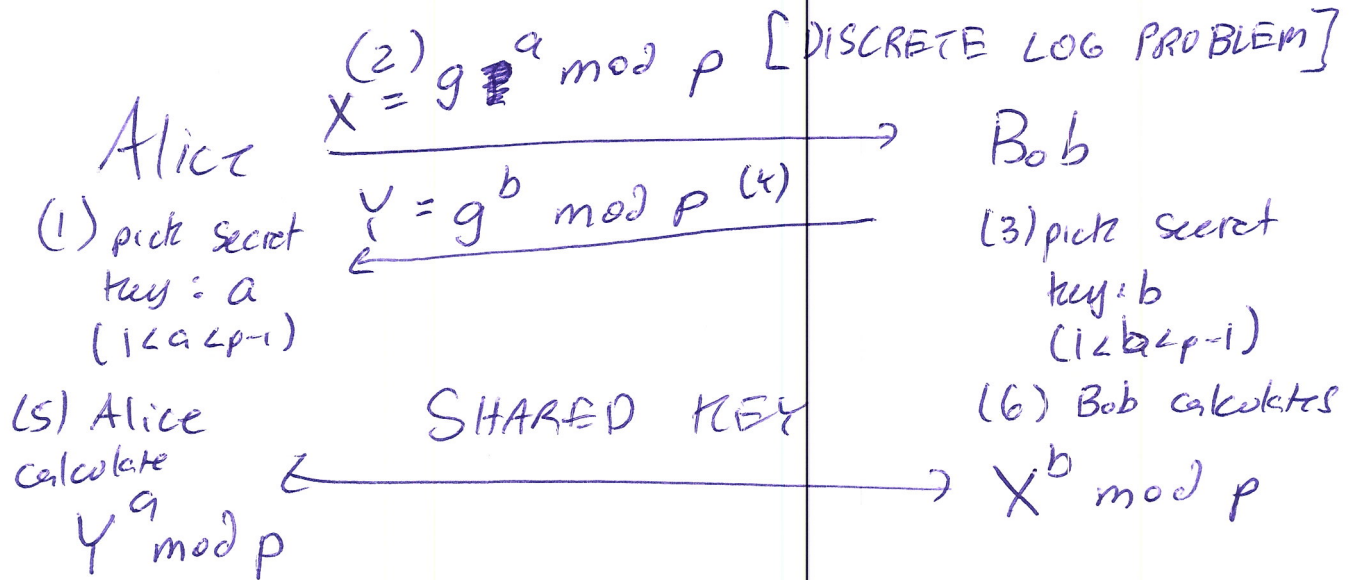 (2)
X = g^a mod p [DISCRETE LOG PROBLEM]
Alice
Bob
Y = g^b mod p (4)
(1) pick secret
key: a
(1<a<p-1)
(3) pick secret
key: b
(1<b<p-1)
(5) Alice
calculate
Y^a mod p
SHARED KEY
(6) Bob calculates
X^b mod p